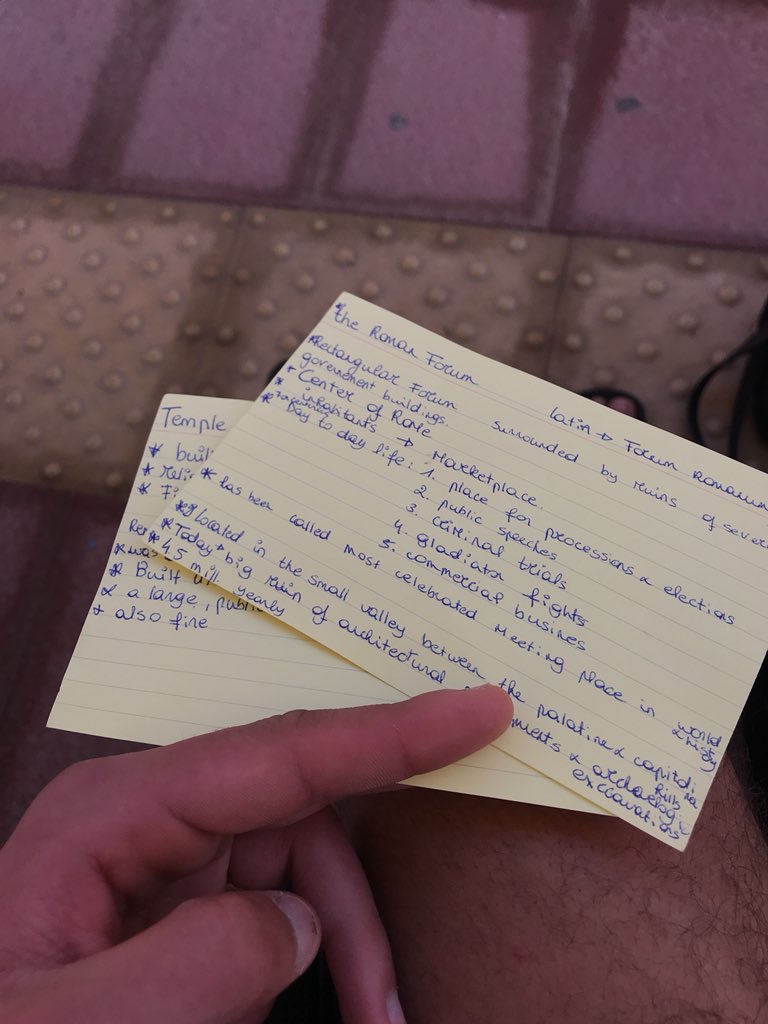 the Roman Forum Latin → Forum Romanum
*Rectangular Forum surrounded by ruins of several
government buildings.
* Center of Rome
* inhabitants → Marketplace.
* Day to day life: 1. place for processions & elections
2. public speeches
3. criminal trials
4. gladiator fights
5. commercial busines
* has been called most celebrated meeting place in world
& history
* located in the small valley between the palatine & capitoli
hills
* Today → big ruin of architectural & archaelogi
exccavations
* 4.5 mill. yearly
Temple
* buil
* reli
* Fi
* was
* Built
& a large, public
+ also fire